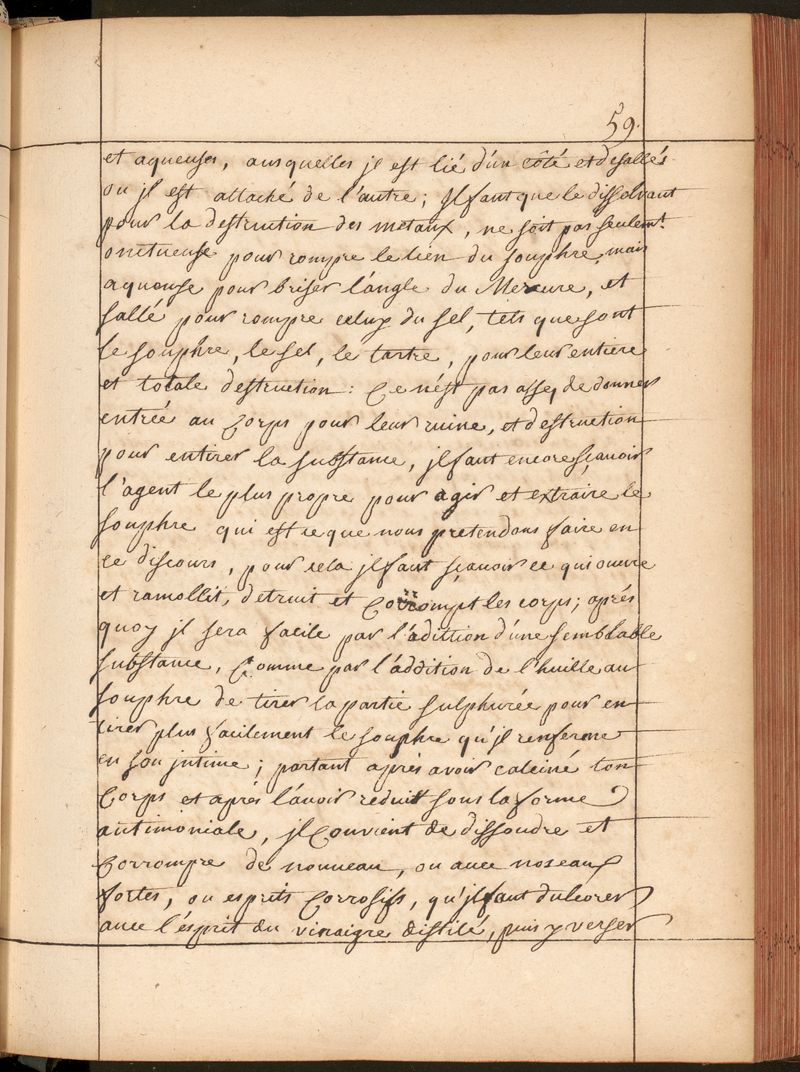 59.
et aqueuses, ausquelles jl est lié d'un côté et desallés
ou jl est attaché de l'autre; Jl faut que le dissolvant
pour la destruction des metaux, ne soit pas seulem.t
onctueuse pour rompre le lien du souphre, mais
aqueuse pour briser l'angle du Mercure, et
sallé pour rompre celuy du sel, tels que sont
le souphre, le sel, le tartre, pour leur entiere
et totale destruction: Ce n'ést pas assez de donner
entrée au Corps pour leur ruine, et destruction
pour entirer la substance, jl faut encore sçauoir
l'agent le plus propre pour agir et extraire le
souphre qui est ce que nous pretendons faire en
ce discours, pour cela jl faut sçauoir ce qui ouvre
et ramollit, detruit et Corrompt les corps; aprés
quoy jl sera facile par l'adittion d'une semblable
substance, Comme par l'addition de l'huille au
souphre de tirer la partie sulphurée pour en
tirer plus facilement le souphre qu'jl renferme
en son jntime; partant aprés avoir calciné ton
Corps et aprés l'auoir reduit sous la forme
antimoniale, jl Convient de dissoudre et
Corrompre de nouveau, ou auec nos eaux
fortes, ou esprits Corrosifs, qu'jl faut dulcorer
auec l'ésprit du vinaigre distilé, puis y verser